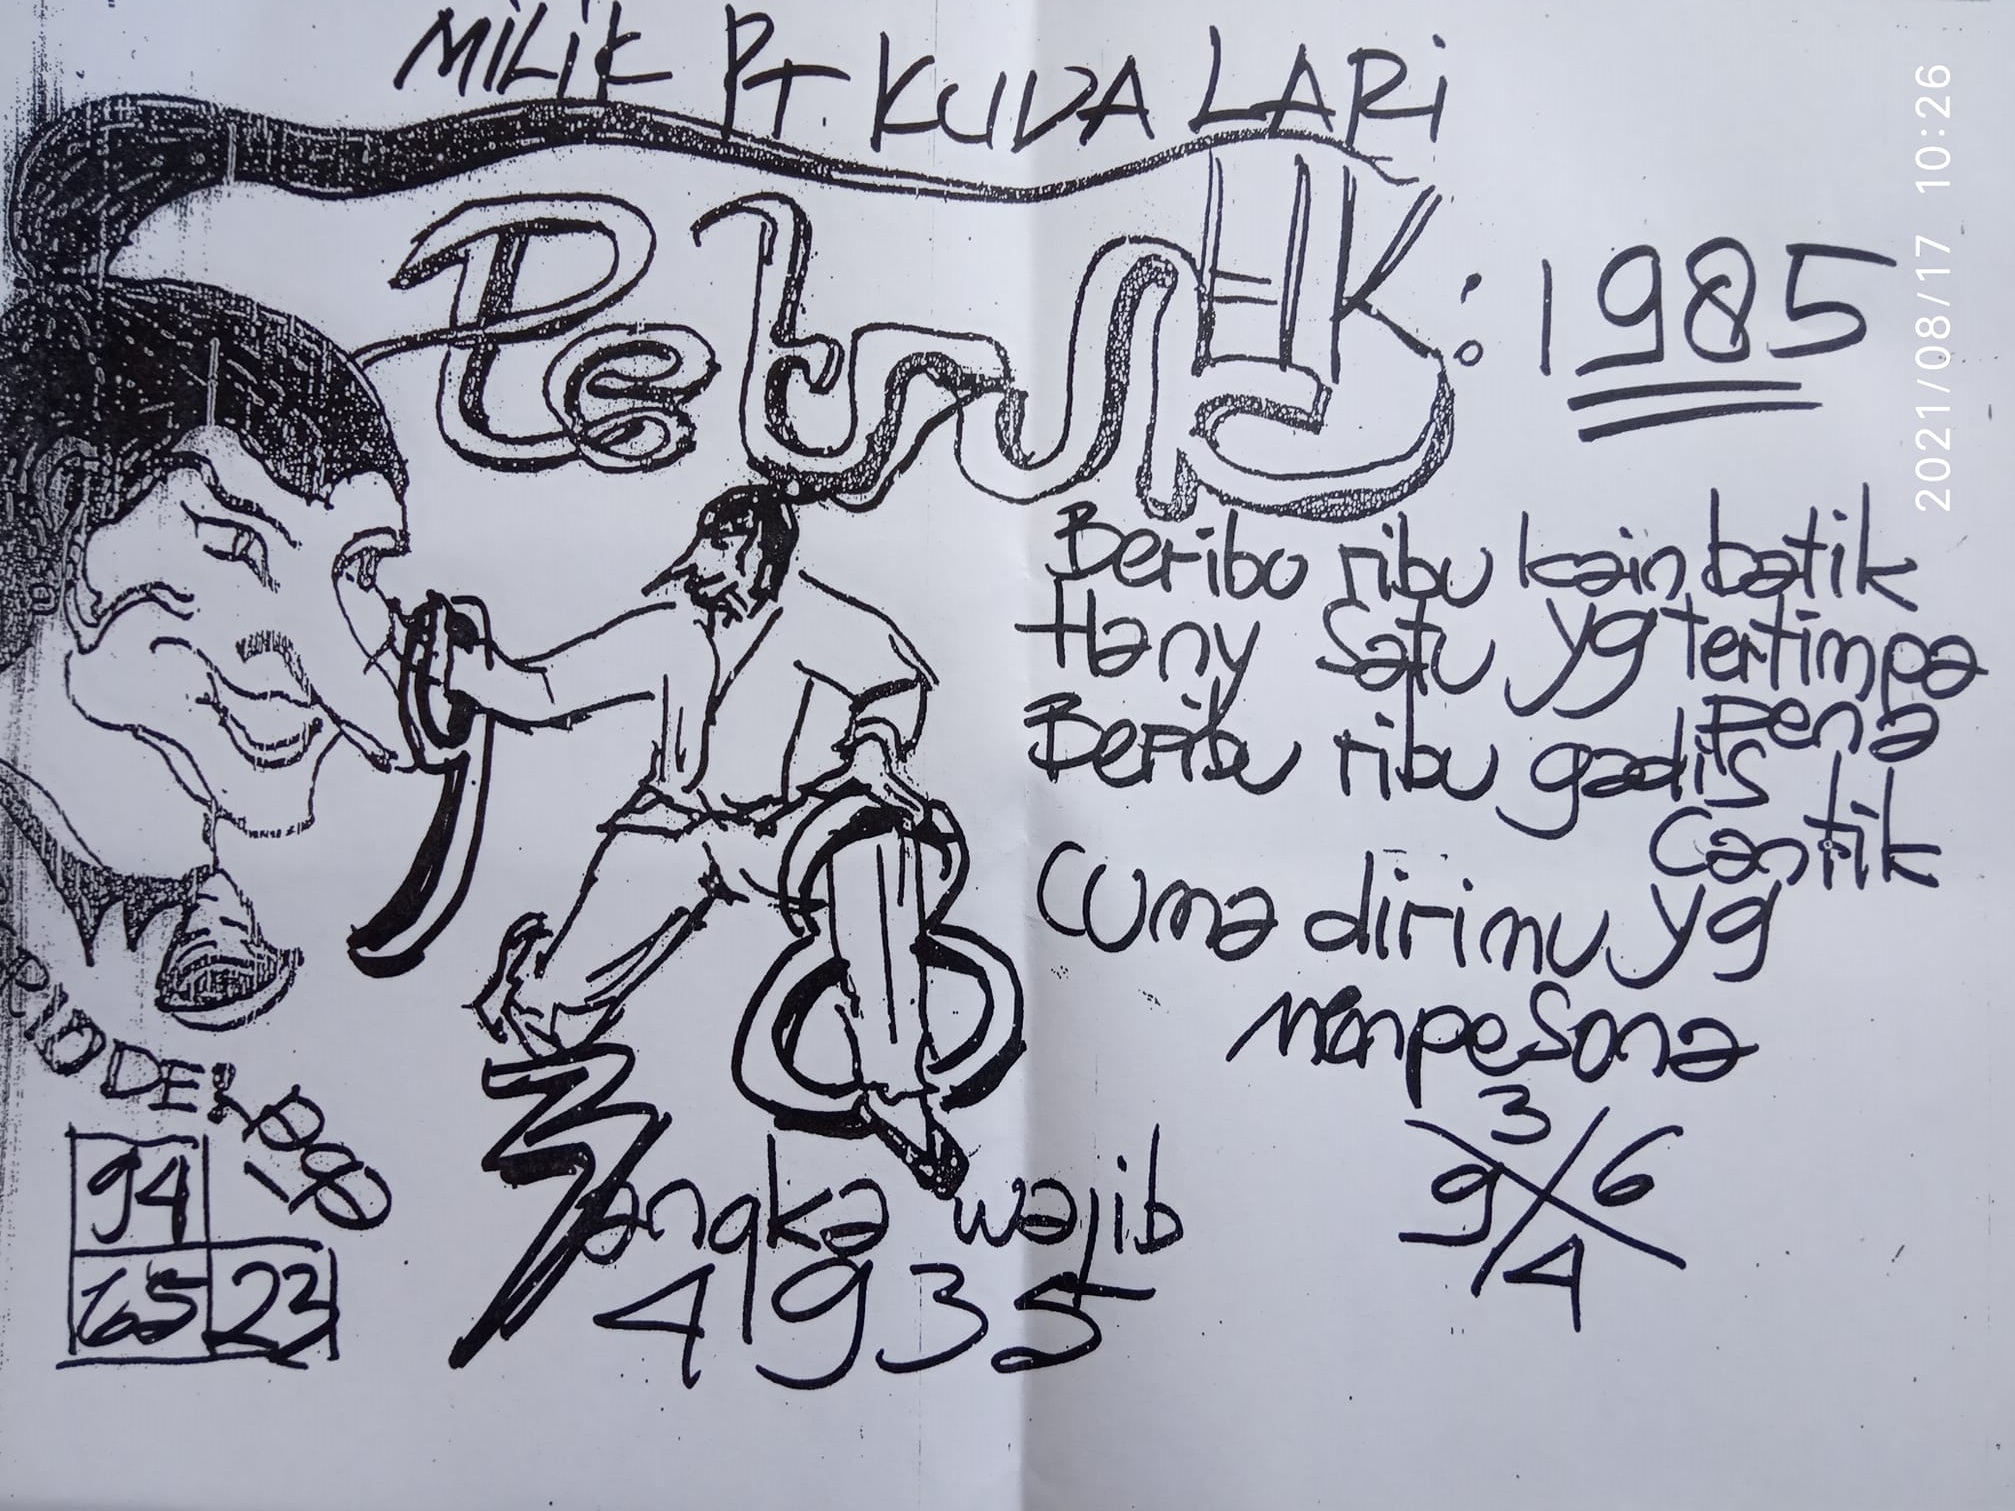 MILIK PT. KUDA LARI
Petruk : 1985
2021/08/17 10:26
Beribu ribu kain batik
Hany satu yg tertimpa
pena
Beribu ribu gadis
cantik
Cuma dirimu yg
menpesona
3
9 6
4
angka wajib
4935
94
65 23